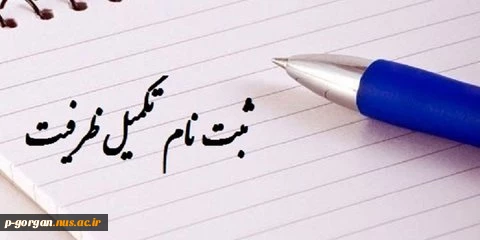 ثبت نام تکمیل ظرفیت
p-gorgan.nus.ac.ir